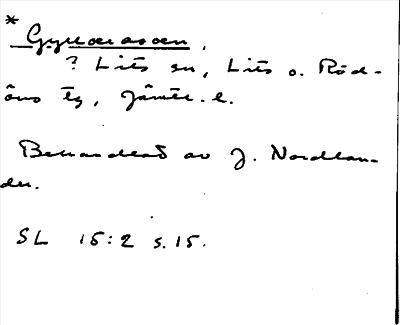 *
? Lits sn, Lits o. Röd-
öns tg, Jämtl. l.
Behandlat av J. Nordlan-
der.
SL 15:2 s.15.